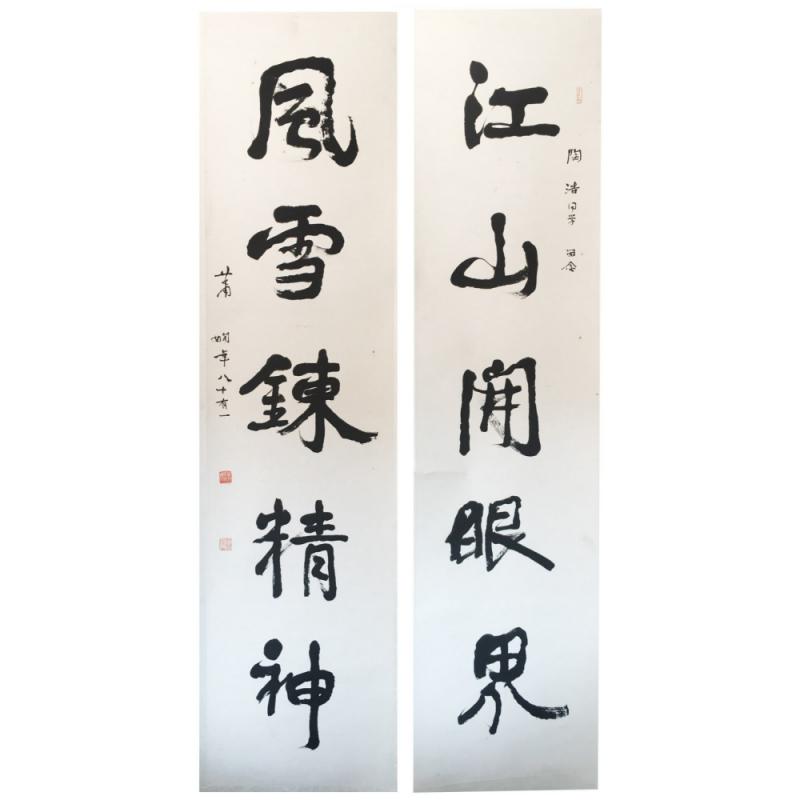 江山開眼界
陶浩同学留念
風雪鍊精神
萧娴年八十有一